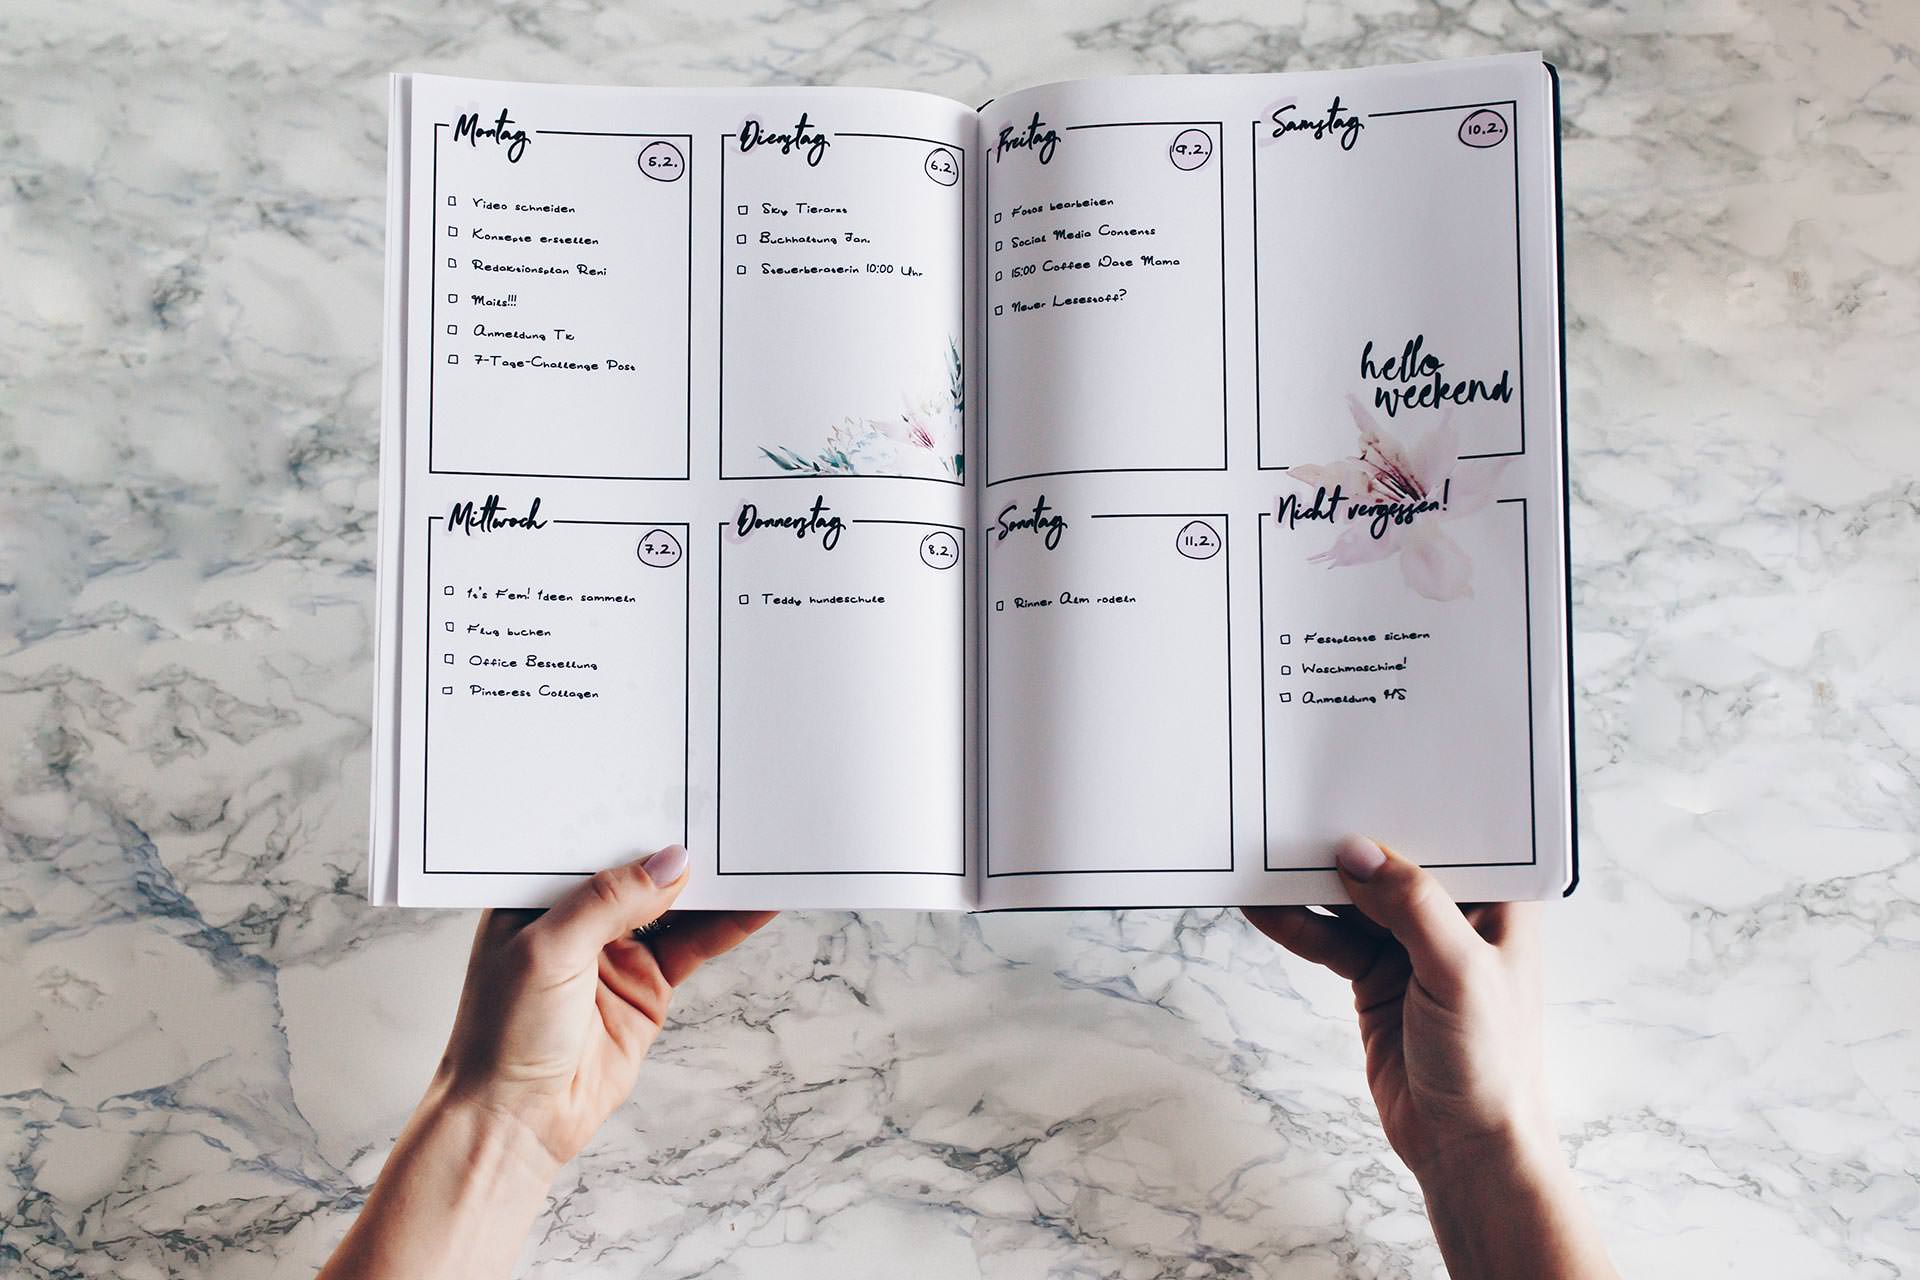 Montag
5.2.
Video schneiden
Konzepte erstellen
Redaktionsplan Reni
Mails!!!
Anmeldung TK
7-Tage-Challenge Post
Dienstag
6.2.
Sky Tierarzt
Buchhaltung Jan.
Steuerberaterin 10:00 Uhr
Mittwoch
7.2.
It's Fem! Ideen sammeln
Flug buchen
Office Bestellung
Pinterest Collagen
Donnerstag
8.2.
Teddy hundeschule
Freitag
9.2.
Fotos bearbeiten
Social Media Contents
15:00 Coffee Date Mama
Neuer Lesestoff?
Samstag
10.2.
hello
weekend
Sonntag
11.2.
Rinner Alm rodeln
Nicht vergessen!
Festplatte sichern
Waschmaschine!
Anmeldung HS